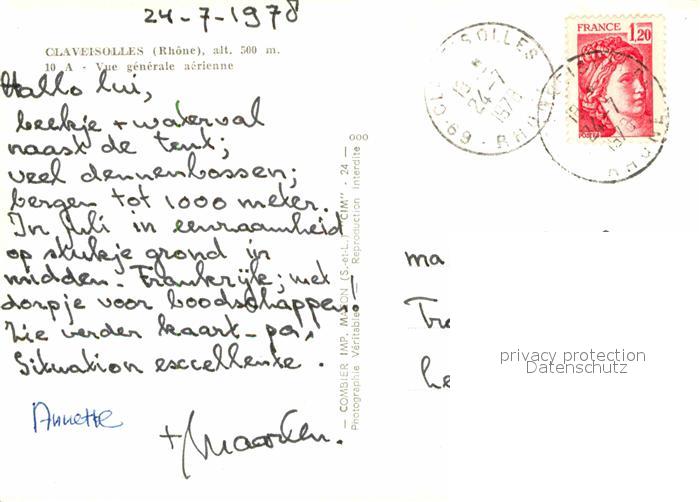 24-7-1978
CLAVEISOLLES (Rhône), alt. 500 m.
10 A - Vue générale aérienne
Hallo lui,
beekje + waterval
naast de tent;
veel dennenbossen;
bergen tot 1000 meter.
In Juli in eenzaamheid
op stukje grond in
midden-Frankrijk; met
dorpje voor boodschappen!
Zie verder kaart-pos
Situation exccellente.
Annette
+ Maarten.
COMBIER IMP. MACON (S.-et-L.) "CIM" - 24 - 000
Photographie Véritable - Reproduction Interdite
FRANCE 1,20
CLAVEISOLLES
24-7
1978
69 - RHONE
24-7
1978
RHONE
ma
Tre
he
privacy protection
Datenschutz